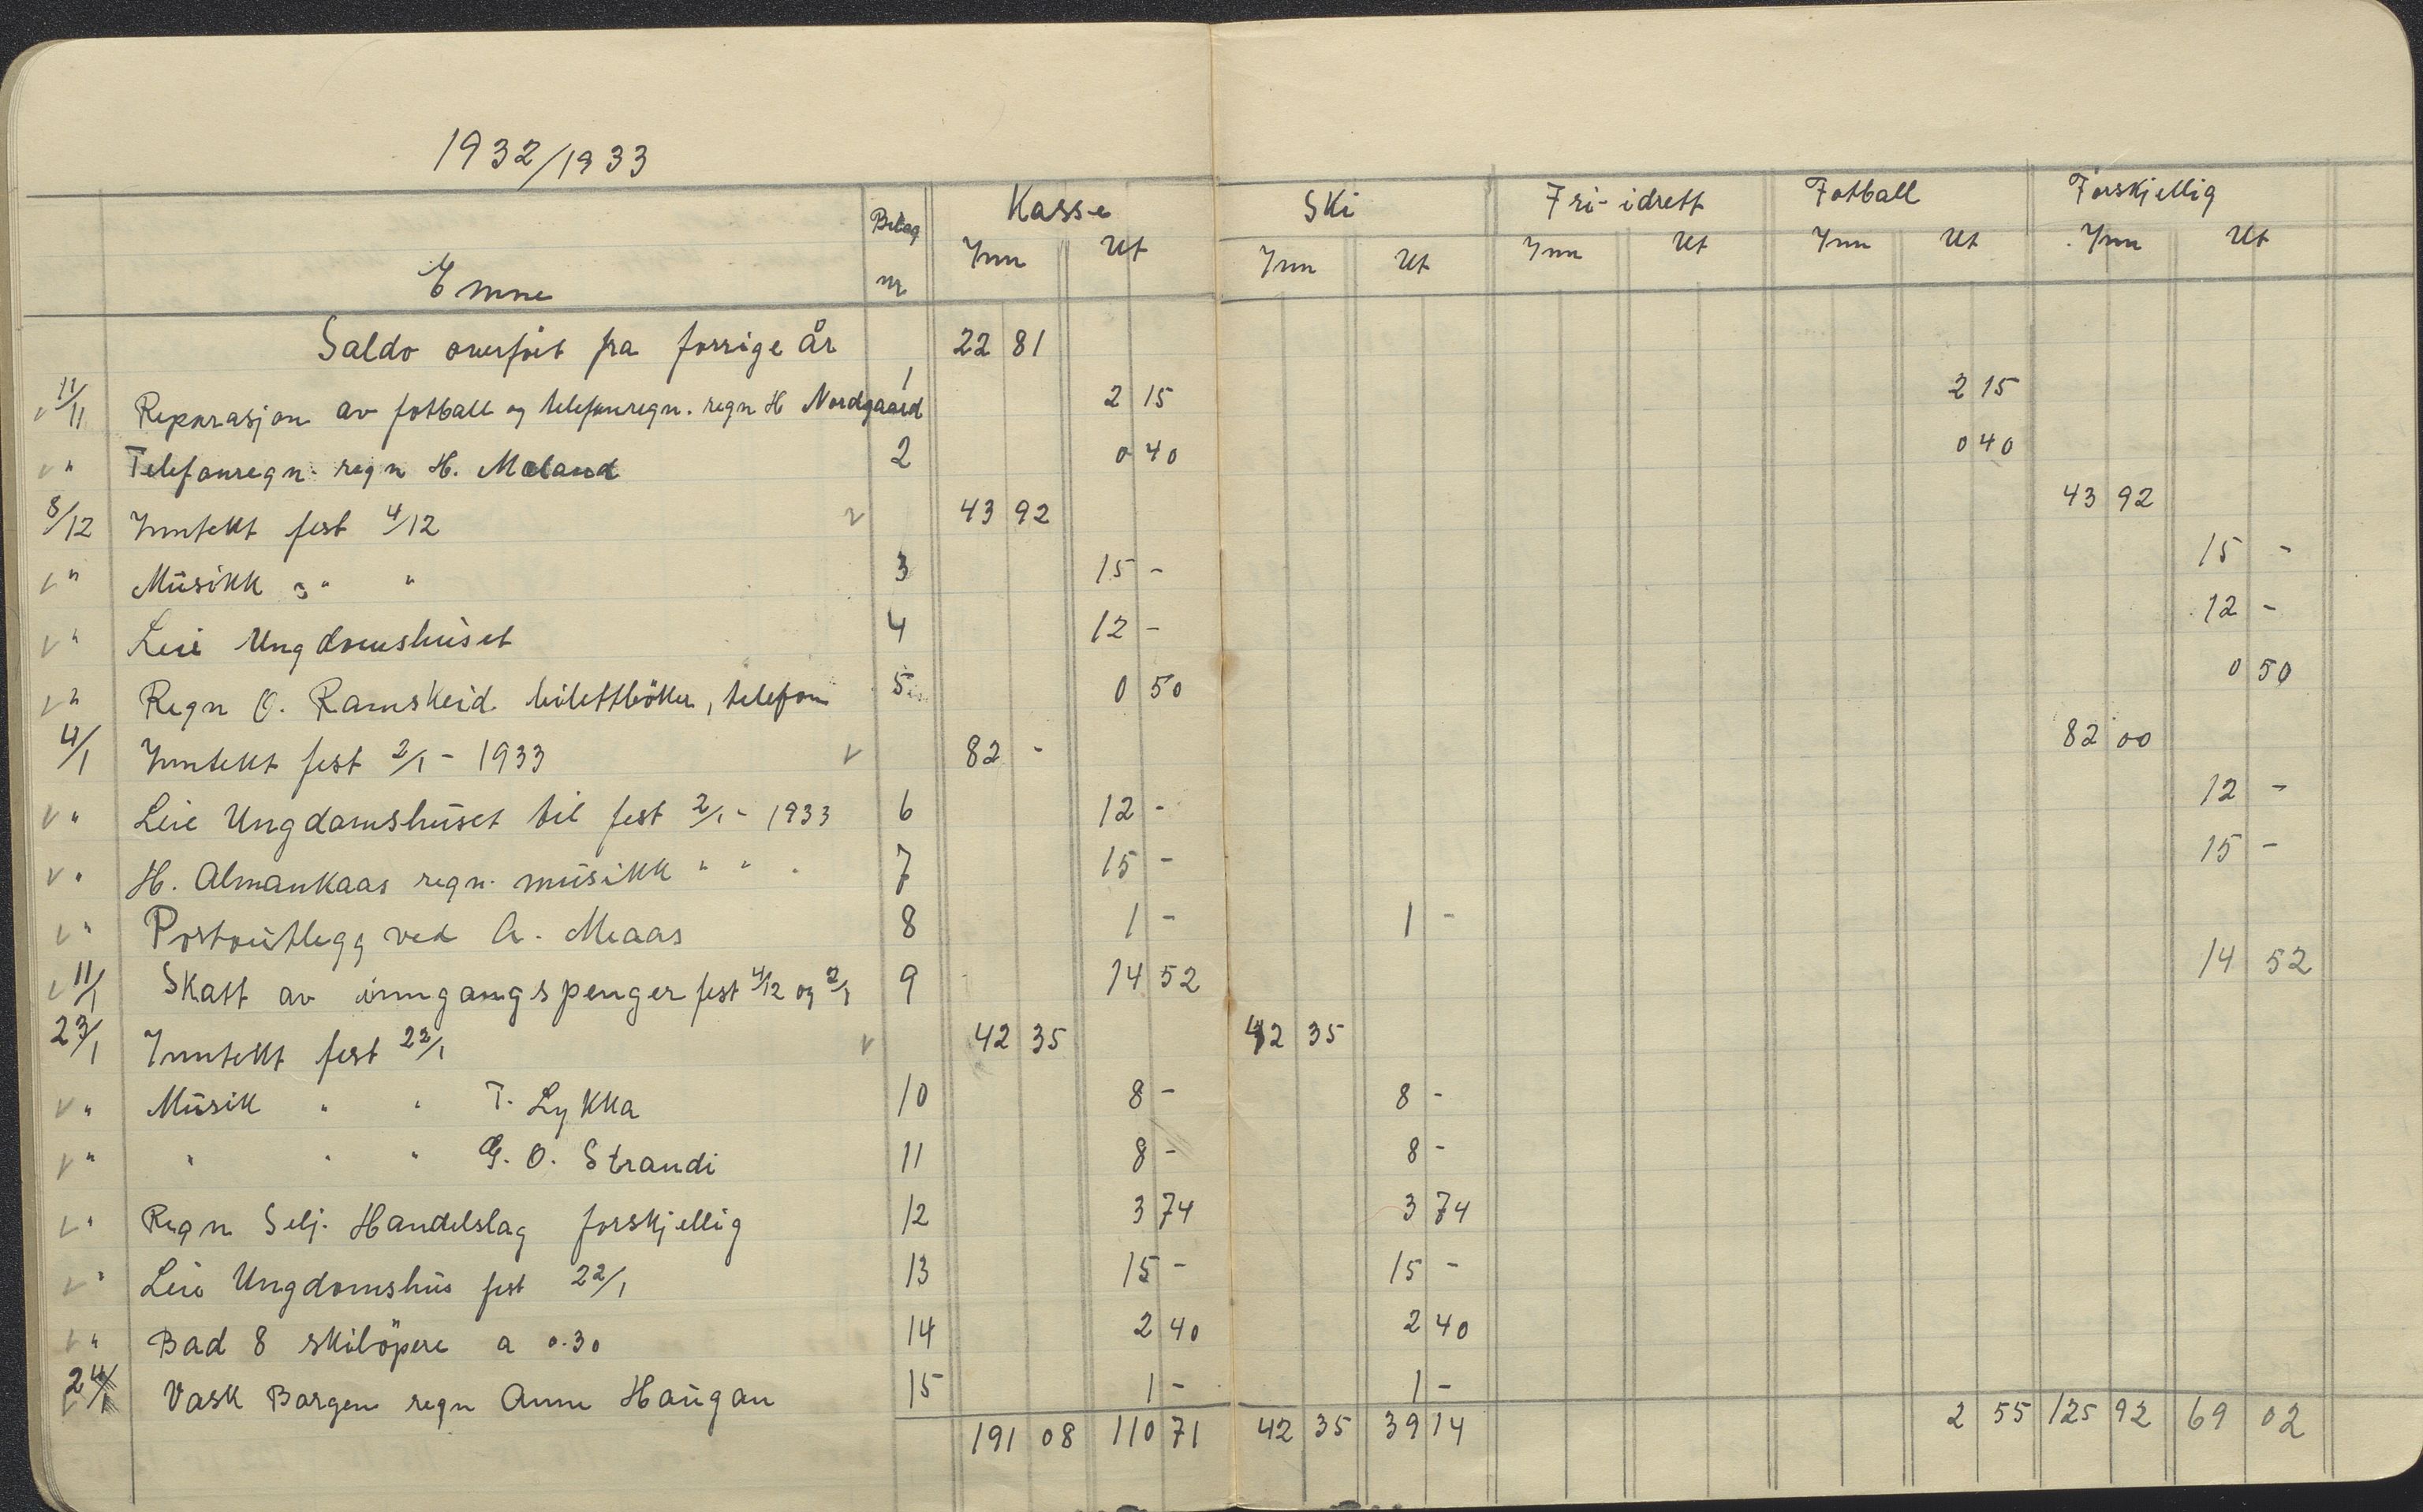 1932/1933
Bilag Kasse Ski Fri-idrett Fotball Forskjellig
Emne nr Inn Ut Inn Ut Inn Ut Inn Ut Inn Ut
Saldo overført fra forrige år 22 81
v 11/11 Reparasjon av fotball og telefonregn. regn H Nordgaard 1 2 15 2 15
v " Telefonregn. regn H. Moland 2 0 40 0 40
8/12 Inntekt fest 4/12 v 43 92 43 92
v " Musikk " " 3 15 - 15 -
v " Leie Ungdomshuset 4 12 - 12 -
v " Regn O. Ramskeid billettböker, telefon 5 0 50 0 50
4/1 Inntekt fest 2/1 - 1933 v 82 - 82 00
v " Leie Ungdomshuset til fest 2/1 - 1933 6 12 - 12 -
v " H. Almankaas regn. musikk " " " 7 15 - 15 -
v " Portoutlegg ved A. Meaas 8 1 - 1 -
v 11/1 Skatt av inngangspenger fest 4/12 og 2/1 9 14 52 14 52
23/1 Inntekt fest 22/1 v 42 35 42 35
v " Musik " " T. Lykka 10 8 - 8 -
v " " " " G. O. Strandi 11 8 - 8 -
v " Regn Selj. Handelslag forskjellig 12 3 74 3 74
v " Leie Ungdomshus fest 22/1 13 15 - 15 -
v " Bad 8 skilöpere a 0.30 14 2 40 2 40
v 24/1 Vask Borgen regn Anne Haugan 15 1 - 1 -
191 08 110 71 42 35 39 14 2 55 125 92 69 02